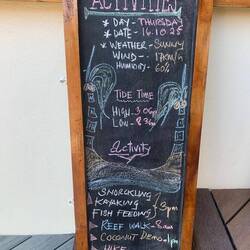 ACTIVITIES
* DAY - THURSDAY
* DATE - 16.10.25
* WEATHER - SUNNY
WIND - 17KM/H
HUMIDITY - 60%
TIDE TIME
HIGH - 3.06pm
LOW - 8.36am
Activity
SNORCKLING
KAYAKING
FISH FEEDING } 3pm
REEF WALK - 8am
COCONUT DEMO - 1pm
HIKE